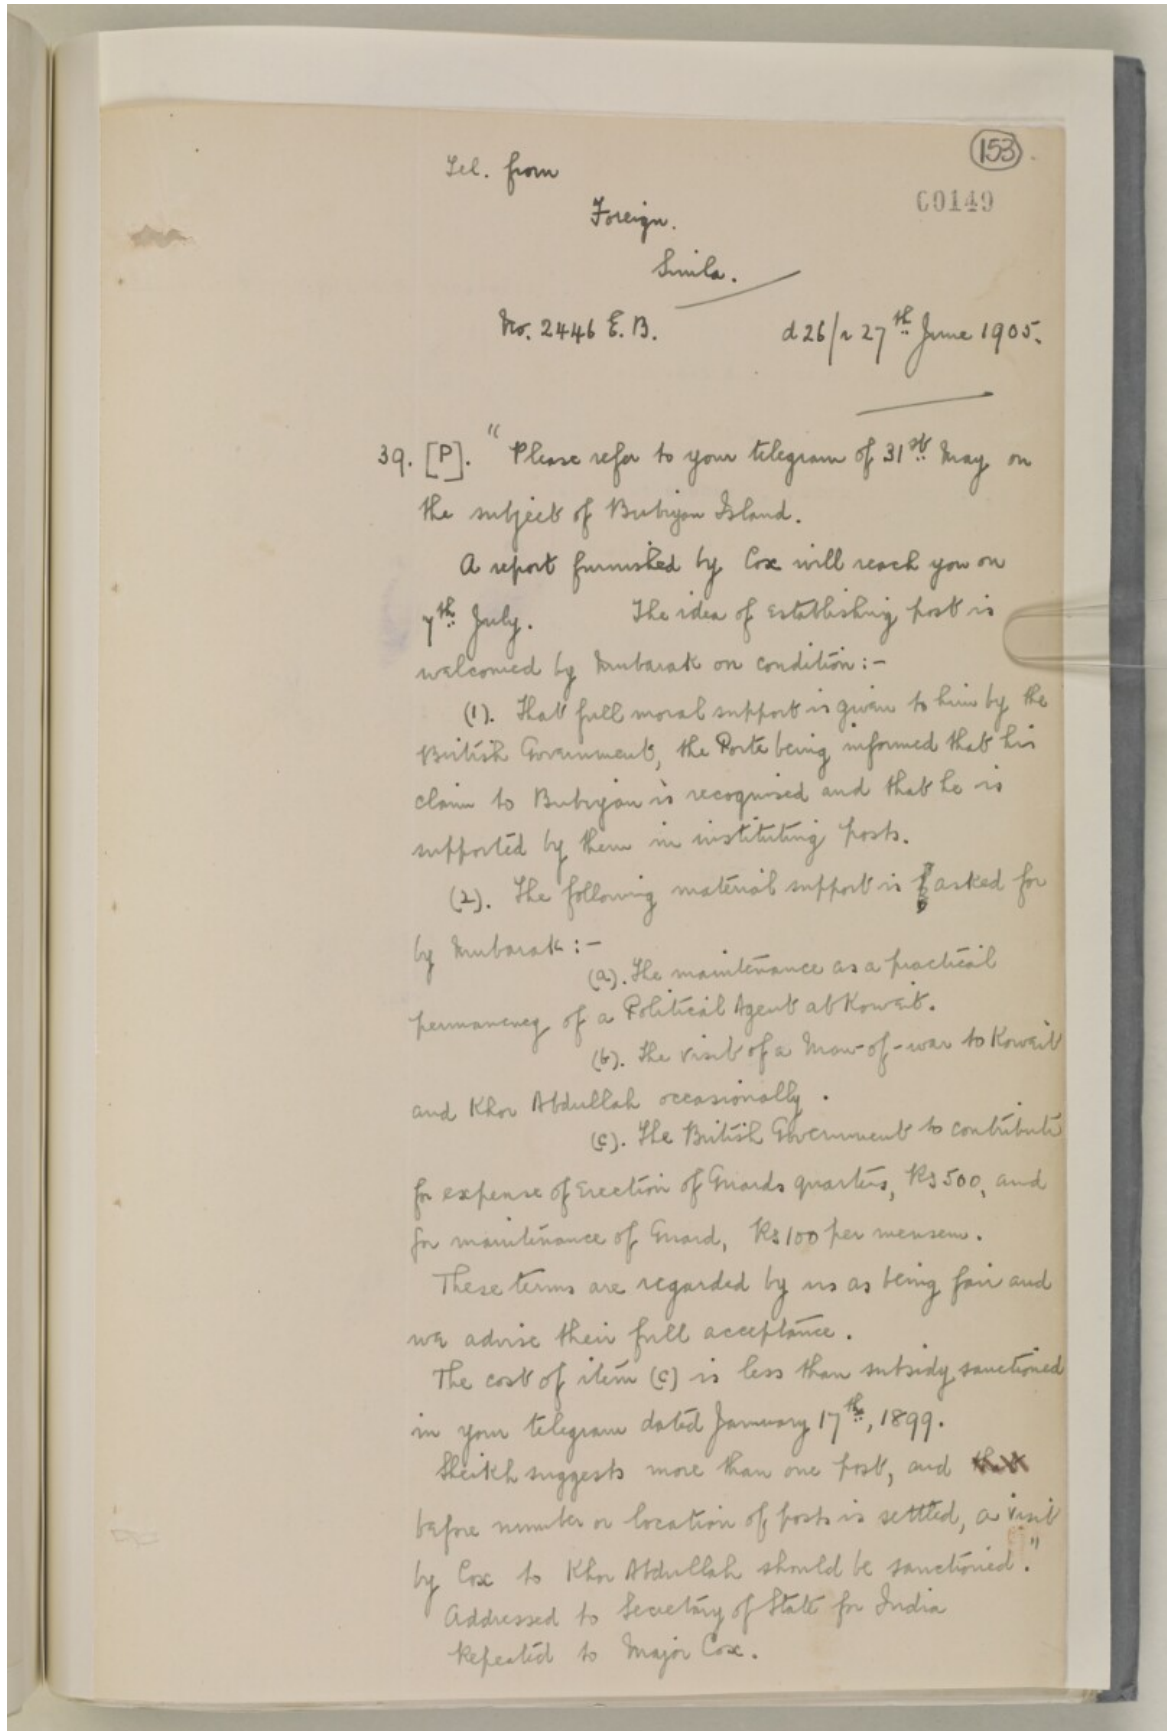 153
00149
Tel. from
Foreign.
Simla.
No. 2446 E.B. d 26/r 27th June 1905.
39. [P]. "Please refer to your telegram of 31st May on
the subject of Bubiyan Island.
A report furnished by Cox will reach you on
7th July. The idea of establishing post is
welcomed by Mubarak on condition:-
(1). That full moral support is given to him by the
British Government, the Porte being informed that his
claim to Bubiyan is recognised and that he is
supported by them in instituting posts.
(2). The following material support is asked for
by Mubarak:-
(a). The maintenance as a practical
permanency of a Political Agent at Koweit.
(b). The visit of a Man-of-war to Koweit
and Khor Abdullah occasionally.
(c). The British Government to contribute
for expense of erection of Guards quarters, Rs 500, and
for maintenance of Guard, Rs 100 per mensem.
These terms are regarded by us as being fair and
we advise their full acceptance.
The cost of item (c) is less than subsidy sanctioned
in your telegram dated January 17th, 1899.
Sheikh suggests more than one post, and
before number or location of posts is settled, a visit
by Cox to Khor Abdullah should be sanctioned."
Addressed to Secretary of State for India
Repeated to Major Cox.